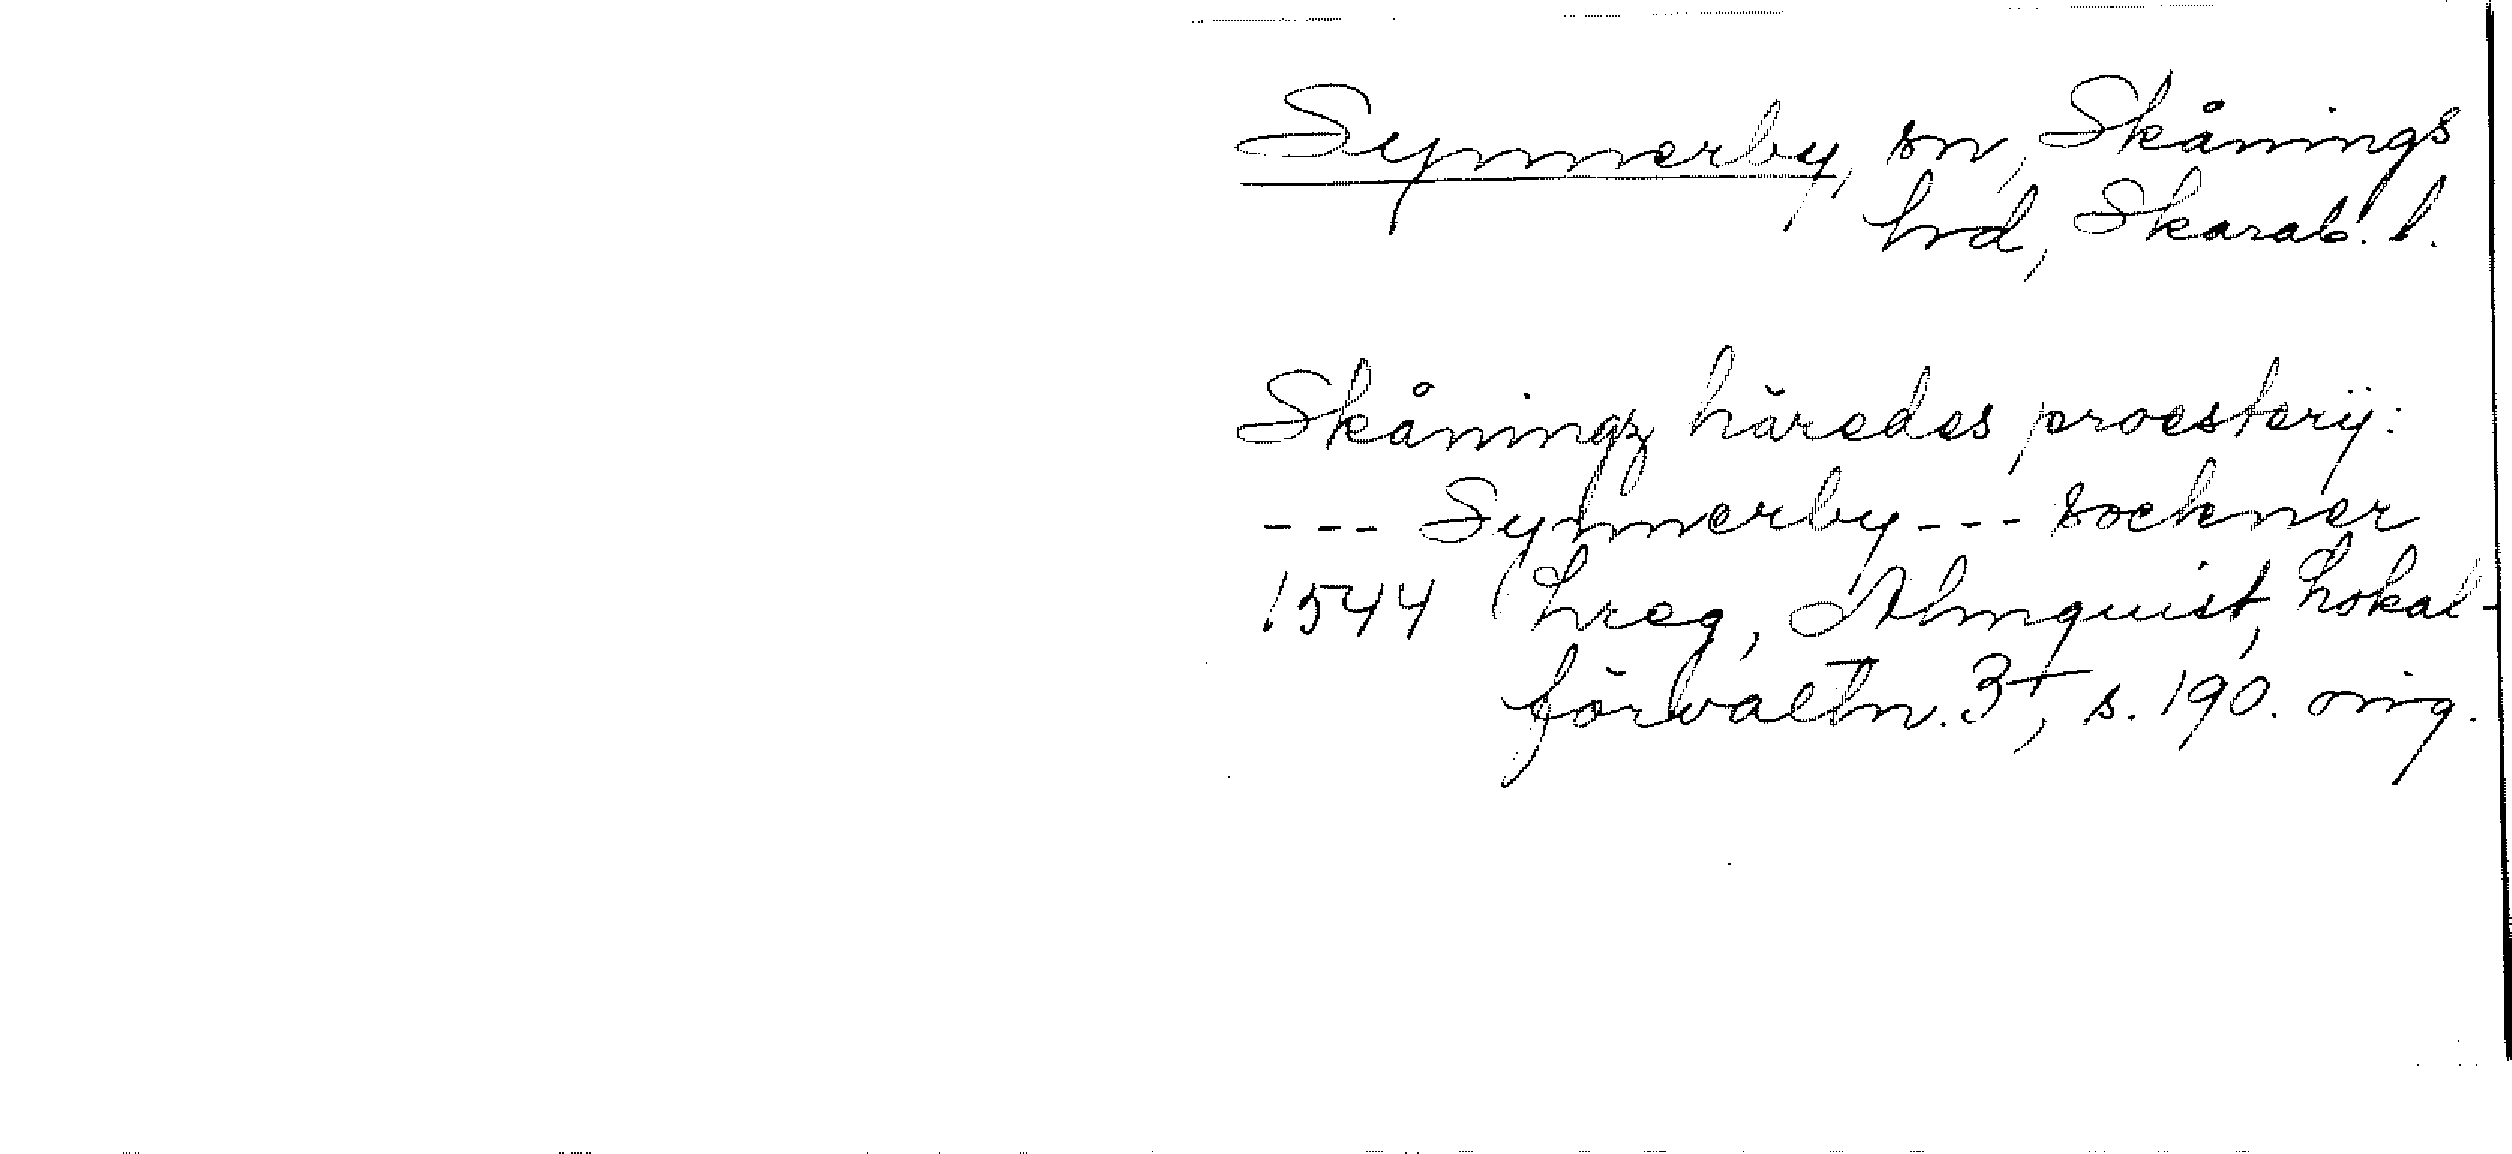 Synnerby, sn, Skånings
hrd, Skarab. l.
Skåningz häredes proesterij:
--- Synnerby --- sockner
1544 (Lreg, Almquist, Lokal-
förvaltn. 3, s. 190. orig.